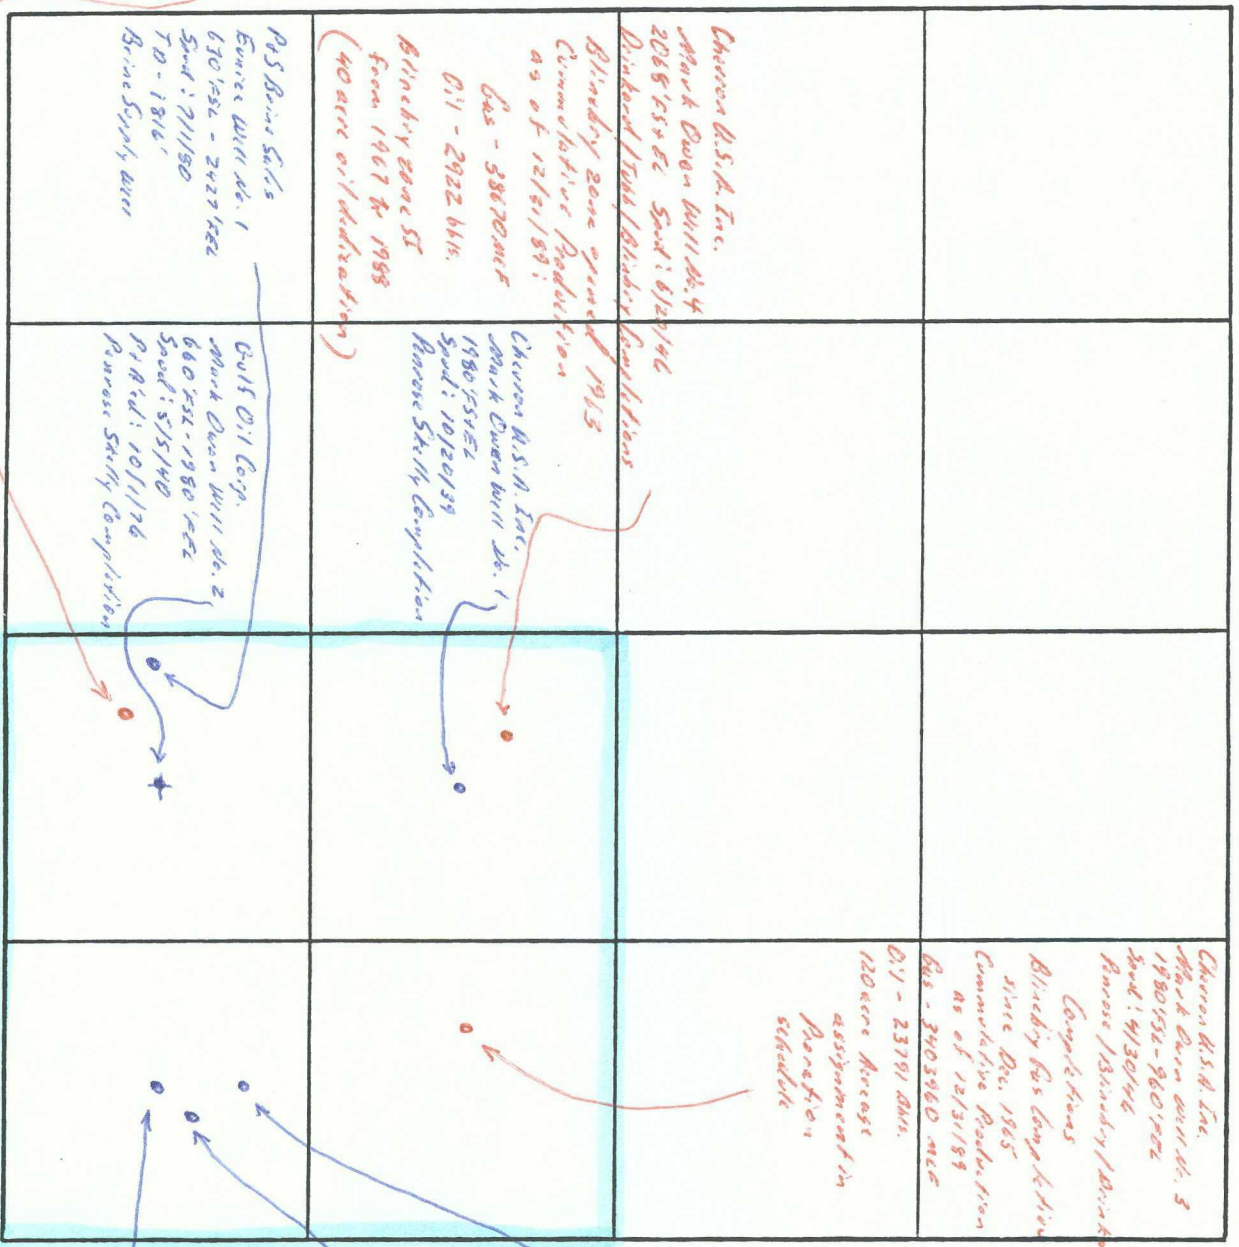 Chevron U.S.A. Inc.
Mark Owen Well No. 4
2068' FS+EL Spud: 6/20/46
Drinkard / Tubb / Blinebry Completions
Blinebry zone opened 1963
Cummulative Production
as of 12/31/89:
Gas - 38670 mcf
Oil - 2922 bbls.
Blinebry zone SI
from 1967 to 1988
(40 acre oil dedication)
P+S Brine Sales
Eunice Well No. 1
630' FSL - 2427' FEL
Spud: 7/1/80
TD - 1816'
Brine Supply Well
Chevron U.S.A. Inc.
Mark Owen Well No. 1
1980' FS+EL
Spud: 10/20/39
Penrose Skelly Completion
Gulf Oil Corp.
Mark Owen Well No. 2
660' FSL - 1980' FEL
Spud: 5/5/40
P+A'd: 10/1/76
Penrose Skelly Completion
Chevron U.S.A. Inc.
Mark Owen Well No. 3
1980' FSL - 960' FEL
Spud: 4/30/46
Penrose / Blinebry / Drinkard
Completions
Blinebry Gas Completion
since Dec. 1965
Cummulative Production
as of 12/31/89
Gas - 3403960 mcf
Oil - 23791 bbls.
120 acre Acreage
assignment in
Proration
schedule